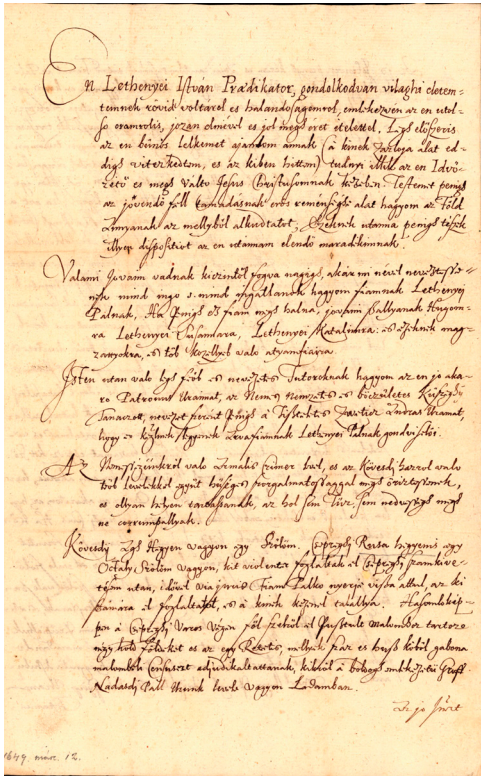 En Lethenyei István Prædikator, gondolkodvan vilaghi eletem=
temnek rövid voltarol es halandosagomrol, emlekezven az en utol=
so oramrolis, jozan elmével es jol meg ert itelettel, Legelőszöris
az en bűnös lelkemet ajanlom annak (à kinek zászloja alat ed=
digh viteszkedtem, es az kiben hittem) tudnyi illik az en Idvö=
zitő es megh valto Jesus Christusomnak kezeiben Testemet penigh
az jövendő föll tamadasnak erős remensege alat hagyom az Föld
annyanak az mellyből alkudtatot, Ezeknek utanna penigh teszek
illyen dispositiot az en utannam elendő maradekimnak.
Valami Jovaim vadnak kicsintől fogva nagigh, akár mi névvel
nek mind ingo s mind ingatlanok hagyom fiamnak Lethenyei
Palnak, Ha Penigh ez fiam megh halna, jovaim szallyanak Hugom=
ra Lethenyei Susannara, Lethenyei Katalinra es ezeknek mag=
zattyokra, es töb közellyeb valo atyamfiaira.
Isten utan valo legh főb es nevezetes Tutoroknak hagyom az en jo aka=
ro Patronus Uramat, az Nemes Nemzetes es böczülletes Küszeghy
Tanaczot, nevezet szerint Penigh a Tisteletes Zwettler Andras Uramat,
hogy eö kegyelmek legyenek arva fiamnak Lethenyei Palnak gondviselöi.
Az Nemessegünkről valo Armalis Czimer level, es az Kövesdy hazrol valo
töb levelekkel együt hüseges szorgalmatossaggal megh őriztessenek,
es ollyan helyen tartassanak, az hol sem tüz, sem nedvesegh megh
ne corrumpallyak.
Kövesdy Legh Hegyen vagyon egy Szőlőm, Csepregh Rusa hegyenis egy
Octaly Szőlőm vagyon, kit violenter foglaltak el Csepreghi szamkive=
tésem utan,
fiamara el foglaltatot, es a kinek kezenel talallya. Hasonlokép=
pen a Csepreghi Varos Vegin föl szelből el Pusztult Malomhoz tartozo
negy hold földeket es az egy Retetis, mellyek szaz es husz köböl gabona
malombeli Censusert adjudikaltattanak, kikről a boldogh emlekezetü Groff
Nadasdj Pall Urunk levele vagyon Ladamban.
1649. márc. 12.